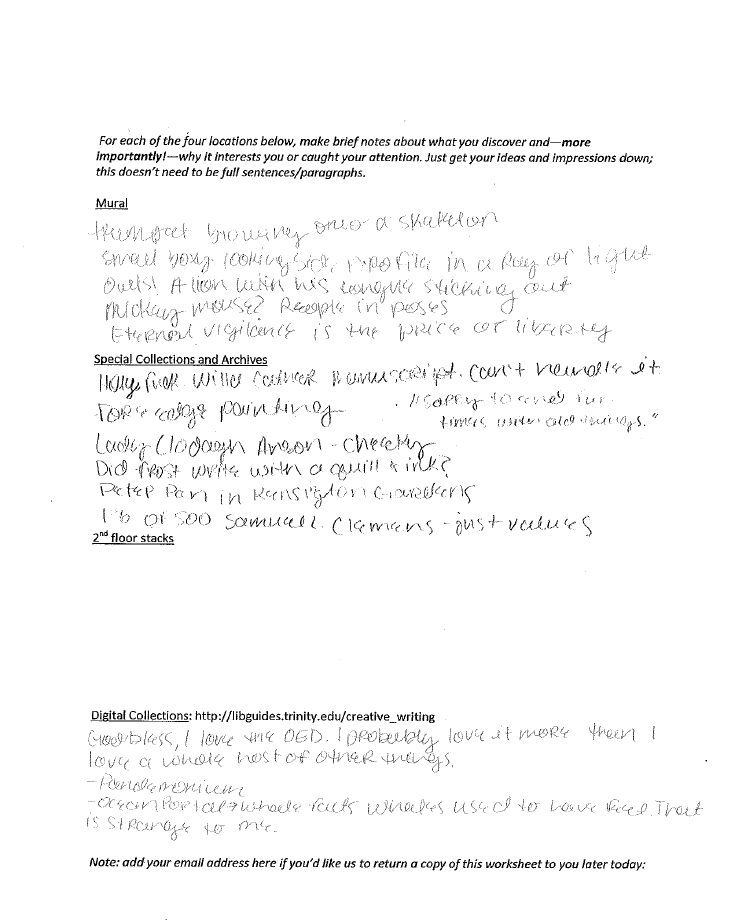 For each of the four locations below, make brief notes about what you discover and—more
importantly!—why it interests you or caught your attention. Just get your ideas and impressions down;
this doesn't need to be full sentences/paragraphs.
Mural
growing onto a skeleton
small boy looking side profile in a Ray of light
Owls! A lion with his tongue sticking out
Mickey mouse? People in poses
Eternal vigilance is the price of liberty
Special Collections and Archives
Willa Cather Manuscript. Can't handle it
Fore edge painting
"Sorry to end
old things."
Lady Clodagh Anson - Cheeky
Did Frost write with a quill & ink?
Peter Pan in Kensington Gardens
1 of 500 Samuel L. Clemens - just values
2nd floor stacks
Digital Collections: http://libguides.trinity.edu/creative_writing
God bless, I love the OED. I probably love it more than I
love a whole host of other things.
- Pandemonium
- Ocean Portal → whale facts whales used to have feet. That
is strange to me.
Note: add your email address here if you'd like us to return a copy of this worksheet to you later today: